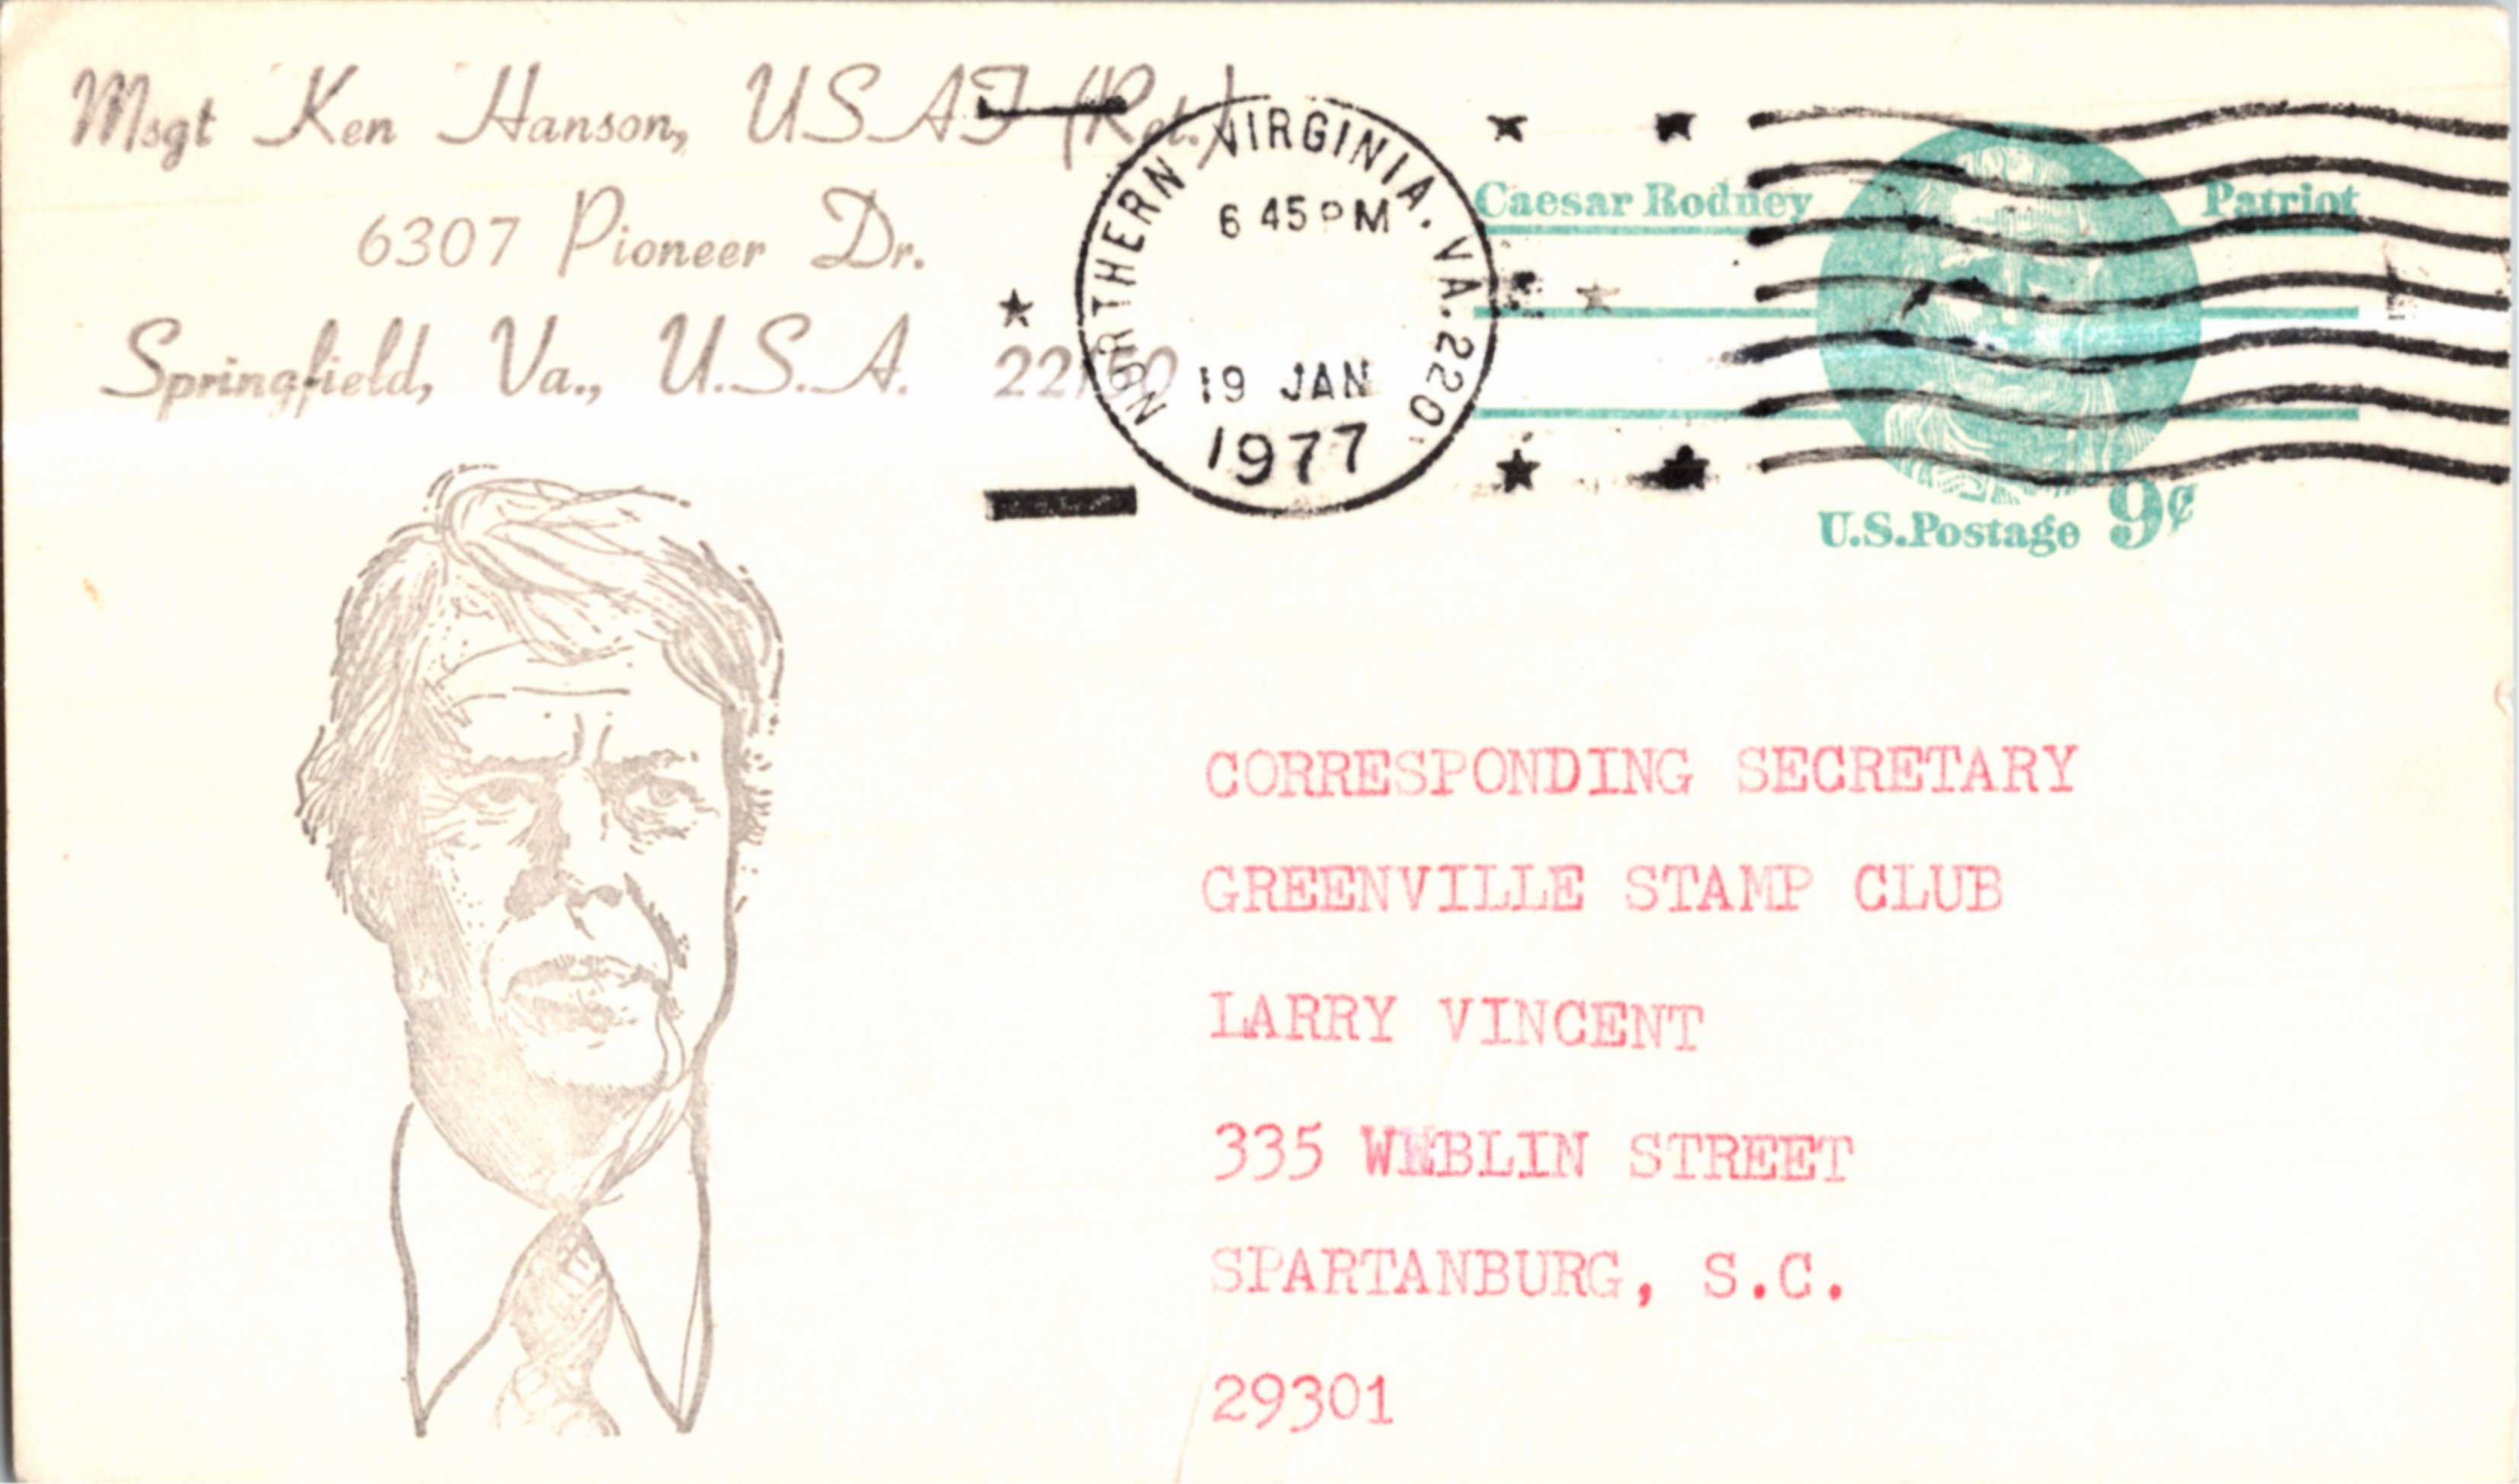 Msgt Ken Hanson, USAF (Ret.)
6307 Pioneer Dr.
Springfield, Va., U.S.A.
NORTHERN VIRGINIA, VA. 220
6 45 PM
19 JAN
1977
Caesar Rodney Patriot
U.S. Postage 9¢
CORRESPONDING SECRETARY
GREENVILLE STAMP CLUB
LARRY VINCENT
335 STREET
SPARTANBURG, S.C.
29301